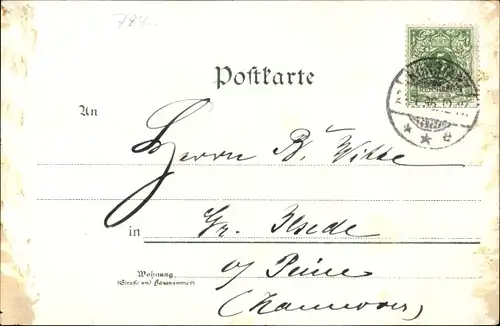 784
Postkarte
An
Herrn B. Witte
in Gr. Ilsede
Wohnung
(Straße und Hausnummer)
b/ Peine
(Hannover)